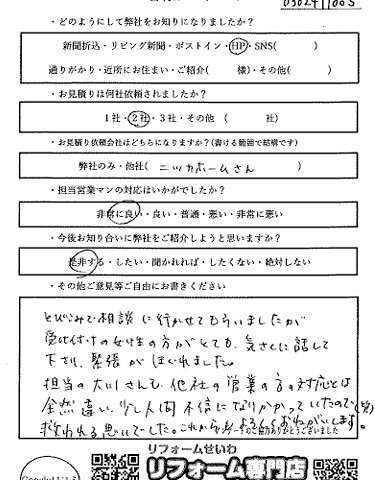 ・どのようにして弊社をお知りになりましたか?
新聞折込・リビング新聞・ポストイン・HP・SNS( )
通りがかり・近所にお住まい・ご紹介( 様)・その他( )
・お見積りは何社依頼されましたか?
1社・2社・3社・その他 ( 社)
・お見積り依頼会社はどちらになりますか?(書ける範囲で結構です)
弊社のみ・他社( ニッカホームさん )
・担当営業マンの対応はいかがでしたか?
非常に良い・良い・普通・悪い・非常に悪い
・今後お知り合いに弊社をご紹介しようと思いますか?
是非する・したい・聞かれれば・したくない・絶対しない
・その他ご意見等ご自由にお書きください
とびこみで相談に行かせてもらいましたが
受け付けの女性の方がとても、気さくに話して
下さり、緊張がほぐれました。
担当の大川さんも、他社の営業の方の対応とは
全然違い、少し人間不信になりかかっていたので(笑)
救われる思いでした。これからよろしくおねがいします。
ご協力ありがとうございました
リフォームせいわ
リフォーム専門店
Google口コミ